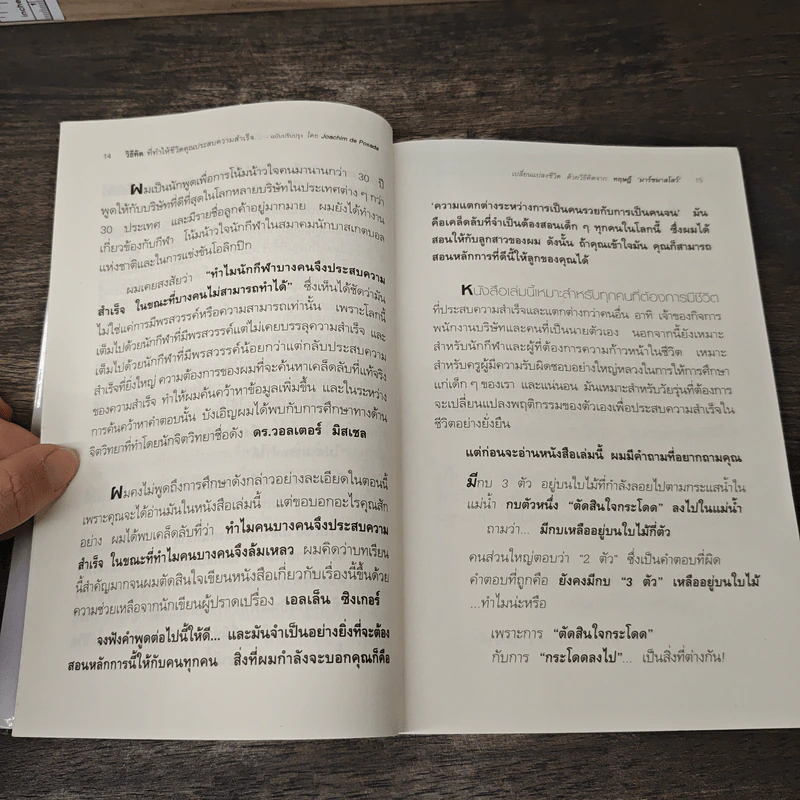 14 วิธีคิด ที่ทำให้ชีวิตคุณประสบความสำเร็จ... ฉบับปรับปรุง โดย Joachim de Posada
ผมเป็นนักพูดเพื่อการโน้มน้าวใจคนมานานกว่า 30 ปี
พูดให้กับบริษัทที่ดีที่สุดในโลกหลายบริษัทในประเทศต่าง ๆ กว่า
30 ประเทศ และมีรายชื่อลูกค้าอยู่มากมาย ผมยังได้ทำงาน
เกี่ยวข้องกับกีฬา โน้มน้าวใจนักกีฬาในสมาคมนักบาสเกตบอล
แห่งชาติและในการแข่งขันโอลิกปิก
ผมเคยสงสัยว่า "ทำไมนักกีฬาบางคนจึงประสบความ
สำเร็จ ในขณะที่บางคนไม่สามารถทำได้" ซึ่งเห็นได้ชัดว่ามัน
ไม่ใช่แค่การมีพรสวรรค์หรือความสามารถเท่านั้น เพราะโลกนี้
เต็มไปด้วยนักกีฬาที่มีพรสวรรค์แต่ไม่เคยบรรลุความสำเร็จ และ
เต็มไปด้วยนักกีฬาที่มีพรสวรรค์น้อยกว่าแต่กลับประสบความ
สำเร็จที่ยิ่งใหญ่ ความต้องการของผมที่จะค้นหาเคล็ดลับที่แท้จริง
ของความสำเร็จ ทำให้ผมค้นคว้าหาข้อมูลเพิ่มขึ้น และในระหว่าง
การค้นคว้าหาคำตอบนั้น บังเอิญผมได้พบกับการศึกษาทางด้าน
จิตวิทยาที่ทำโดยนักจิตวิทยาชื่อดัง ดร.วอลเตอร์ มิสเชล
ผมคงไม่พูดถึงการศึกษาดังกล่าวอย่างละเอียดในตอนนี้
เพราะคุณจะได้อ่านมันในหนังสือเล่มนี้ แต่ขอบอกอะไรคุณสัก
อย่าง ผมได้พบเคล็ดลับที่ว่า ทำไมคนบางคนจึงประสบความ
สำเร็จ ในขณะที่ทำไมคนบางคนจึงล้มเหลว ผมคิดว่าบทเรียน
นี้สำคัญมากจนผมตัดสินใจเขียนหนังสือเกี่ยวกับเรื่องนี้ขึ้นด้วย
ความช่วยเหลือจากนักเขียนผู้ปราดเปรื่อง เอลเล็น ซิงเกอร์
จงฟังคำพูดต่อไปนี้ให้ดี... และมันจำเป็นอย่างยิ่งที่จะต้อง
สอนหลักการนี้ให้กับคนทุกคน สิ่งที่ผมกำลังจะบอกคุณก็คือ
เปลี่ยนแปลงชีวิต ด้วยวิธีคิดจาก ทฤษฎี 'มาร์ชมาลโลว์' 15
'ความแตกต่างระหว่างการเป็นคนรวยกับการเป็นคนจน' มัน
คือเคล็ดลับที่จำเป็นต้องสอนเด็ก ๆ ทุกคนในโลกนี้ ซึ่งผมได้
สอนให้กับลูกสาวของผม ดังนั้น ถ้าคุณเข้าใจมัน คุณก็สามารถ
สอนหลักการที่ดีนี้ให้ลูกของคุณได้
หนังสือเล่มนี้เหมาะสำหรับทุกคนที่ต้องการมีชีวิต
ที่ประสบความสำเร็จและแตกต่างกว่าคนอื่น อาทิ เจ้าของกิจการ
พนักงานบริษัทและคนที่เป็นนายตัวเอง นอกจากนี้ยังเหมาะ
สำหรับนักกีฬาและผู้ที่ต้องการความก้าวหน้าในชีวิต เหมาะ
สำหรับครูผู้มีความรับผิดชอบอย่างใหญ่หลวงในการให้การศึกษา
แก่เด็ก ๆ ของเรา และแน่นอน มันเหมาะสำหรับวัยรุ่นที่ต้องการ
จะเปลี่ยนแปลงพฤติกรรมของตัวเองเพื่อประสบความสำเร็จใน
ชีวิตอย่างยั่งยืน
แต่ก่อนจะอ่านหนังสือเล่มนี้ ผมมีคำถามที่อยากถามคุณ
มีกบ 3 ตัว อยู่บนใบไม้ที่กำลังลอยไปตามกระแสน้ำใน
แม่น้ำ กบตัวหนึ่ง "ตัดสินใจกระโดด" ลงไปในแม่น้ำ
ถามว่า... มีกบเหลืออยู่บนใบไม้กี่ตัว
คนส่วนใหญ่ตอบว่า "2 ตัว" ซึ่งเป็นคำตอบที่ผิด
คำตอบที่ถูกคือ ยังคงมีกบ "3 ตัว" เหลืออยู่บนใบไม้
...ทำไมน่ะหรือ
เพราะการ "ตัดสินใจกระโดด"
กับการ "กระโดดลงไป"... เป็นสิ่งที่ต่างกัน!